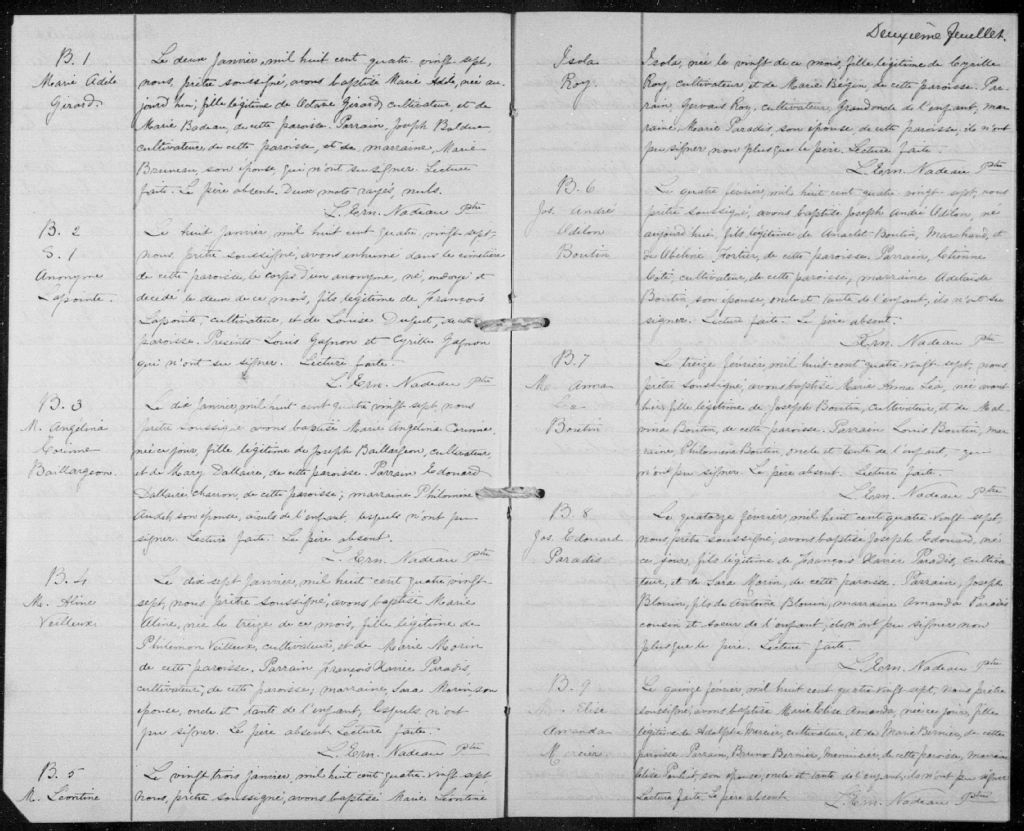 B. 1
Marie Adèle
Girard.
Le deux Janvier, mil huit cent quatre vingt-sept,
nous, prêtre soussigné, avons baptisé Marie Adèle, née au
jourd'hui, fille légitime de Octave Girard, cultivateur, et de
Marie Badeau, de cette paroisse. Parrain, Joseph Balduc
cultivateur de cette paroisse, et de marraine, Marie
Bruneau, son épouse, qui n'ont su signer. Lecture
faite. Le père absent. Deux mots rayés, nuls.
L. Ern. Nadeau Ptre
B. 2
S. 1
Anonyme
Lapointe.
Le huit Janvier mil huit cent quatre vingt sept-
nous, prêtre soussigné, avons inhumé dans le cimetière
de cette paroisse, le corps d'un anonyme, né, ondoyé et
décédé le deux de ce mois, fils légitime de François
Lapointe, cultivateur, et de Louise Duput, de cette
paroisse. Présents Louis Gagnon et Cyrille Gagnon
qui n'ont su signer. Lecture faite.
L. Ern. Nadeau Ptre
B. 3
M. Angelina
Corinne
Baillargeon.
Le dix Janvier, mil huit cent quatre vingt sept, nous
prêtre soussigné avons baptisé Marie Angelina Corinne,
née ce jour, fille légitime de Joseph Baillargeon, cultivateur,
et de Mary Dallaire, de cette paroisse. Parrain Edouard
Dallaire, charron, de cette paroisse; marraine Philomène
Audet, son épouse, aïeuls de l'enfant, lesquels n'ont pu
signer. Lecture faite. Le père absent.
L. Ern. Nadeau Ptre
B. 4
M. Aline
Veilleux
Le dix sept Janvier, mil huit cent quatre vingt-
sept, nous prêtre soussigné, avons baptisé Marie
Aline, née le treize de ce mois, fille légitime de
Philemon Veilleux, cultivateur, et de Marie Morin
de cette paroisse, Parrain François Xavier Paradis,
cultivateur, de cette paroisse; marraine, Sara Morin, son
épouse, oncle et tante de l'enfant, lesquels n'ont
pu signer. Le père absent. Lecture faite.
L. Ern. Nadeau Ptre
B. 5
M. Léontine
Le vingt trois Janvier, mil huit cent quatre-vingt sept
nous, prêtre soussigné, avons baptisé Marie Léontine
Deuxième feuillet.
Isola
Roy.
Isola, née le vingt de ce mois, fille légitime de Cyrille
Roy, cultivateur, et de Marie Bégin, de cette paroisse. Par-
rain Gervais Roy, cultivateur, Grandoncle de l'enfant, mar
raine, Marie Paradis, son épouse de cette paroisse, ils n'ont
pu signer, non plus que le père. Lecture faite.
L. Ern. Nadeau Ptre
B. 6
Jos. André
Odilon
Boutin
Le quatre février, mil huit cent quatre vingt-sept, nous
prêtre soussigné, avons baptisé Joseph André Odilon, né
aujourd'hui, fils légitime de Anaclet Boutin, Marchand, et
de Abeline Fortier, de cette paroisse. Parrain, Etienne
Coté, cultivateur, de cette paroisse, marraine Adelaide
Boutin, son épouse, oncle et tante de l'enfant, ils n'ont su
signer. Lecture faite. Le père absent.
L. Ern. Nadeau Ptre
B. 7
M. Anna
Léa
Boutin
Le treize février, mil huit-cent quatre vingt sept, nous
prêtre soussigné, avons baptisé Marie Anna Léa, née avant
hier, fille légitime de Joseph Boutin, cultivateur, et de Mal-
vina Boutin, de cette paroisse. Parrain Louis Boutin, mar
raine, Philomène Boutin, oncle et tante de l'enfant, qui
n'ont pu signer. Le père absent. Lecture faite.
L. Ern. Nadeau Ptre
B. 8
Jos. Edouard
Paradis
Le quatorze février, mil huit cent quatre vingt sept,
nous, prêtre soussigné, avons baptisé Joseph Edouard, né
ce jour, fils légitime de François Xavier Paradis, cultiva-
teur, et de Sara Morin, de cette paroisse. Parrain, Joseph
Blouin, fils de Antoine Blouin, marraine Amanda Paradis
cousin et soeur de l'enfant; ils n'ont pu signer non
plus que le père. Lecture faite.
L. Ern. Nadeau Ptre
B. 9
Elise
Amanda
Mercier
Le quinze février, mil huit cent quatre vingt-sept, nous prêtre
soussigné, avons baptisé Marie Elise Amanda, née ce jour, fille
légitime de Adolphe Mercier, cultivateur, et de Marie Bernier, de cette
paroisse Parrain, Bruno Bernier, Menuisier, de cette paroisse, marraine
Elise Pouliot, son épouse, oncle et tante de l'enfant, ils n'ont pu signer
Lecture faite. Le père absent. L. Ern. Nadeau Ptre